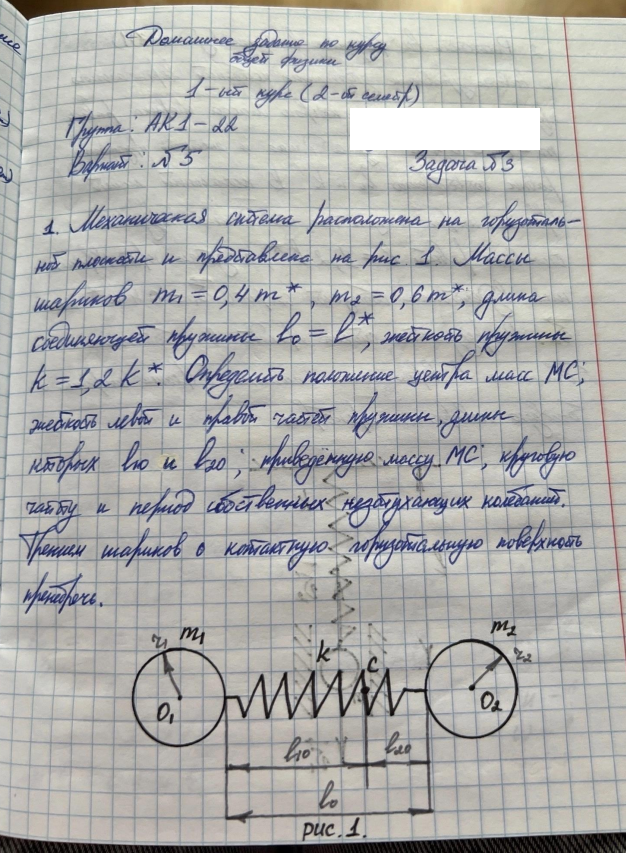 Домашнее задание по курсу
общей физики
1-ый курс (2-ой семестр)
Группа: АК1-22
Вариант: №5 Задача №3
1. Механическая система расположена на горизонталь-
ной плоскости и представлена на рис. 1. Массы
шариков m₁ = 0,4 m*, m₂ = 0,6 m*, длина
соединяющей пружины l₀ = l*, жёсткость пружины
k = 1,2 k*. Определить положение центра масс МС;
жёсткость левой и правой частей пружины, длины
которых l₁₀ и l₂₀; приведённую массу МС, круговую
частоту и период собственных незатухающих колебаний.
Трением шариков о контактную горизонтальную поверхность
пренебречь.
r₁ m₁ m₂ r₂
k C
O₁ O₂
l₁₀ l₂₀
l₀
рис. 1.